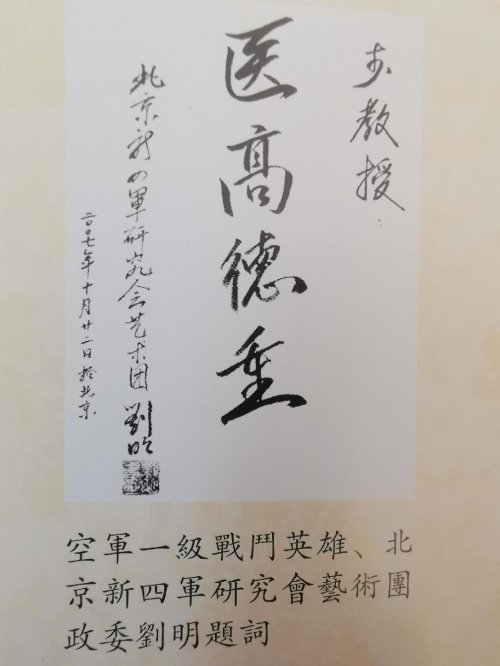 步教授：
医高德重
北京新四軍研究会艺术团 劉明
二〇〇七年十月廿二日於北京
空軍一級戰鬥英雄、北
京新四軍研究會藝術團
政委劉明題詞